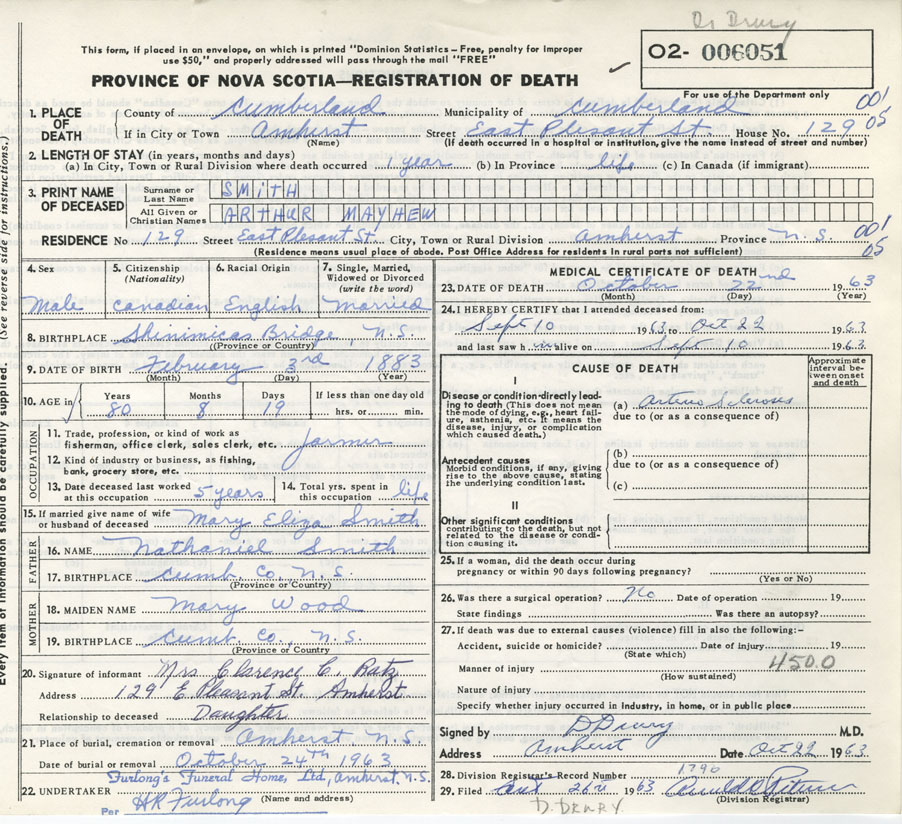 Dr Drury
This form, if placed in an envelope, on which is printed "Dominion Statistics – Free, penalty for improper
use $50," and properly addressed will pass through the mail "FREE"
O2- 006051
PROVINCE OF NOVA SCOTIA—REGISTRATION OF DEATH
For use of the Department only
1. PLACE OF DEATH
County of Cumberland Municipality of Cumberland 001
If in City or Town Amherst Street East Plesant St. House No. 129 05
(Name) (If death occurred in a hospital or institution, give the name instead of street and number)
2. LENGTH OF STAY (in years, months and days)
(a) In City, Town or Rural Division where death occurred 1 year (b) In Province life (c) In Canada (if immigrant)
3. PRINT NAME OF DECEASED
Surname or Last Name SMITH
All Given or Christian Names ARTHUR MAYHEW
RESIDENCE No 129 Street East Plesant St. City, Town or Rural Division Amherst Province N.S. 001 05
(Residence means usual place of abode. Post Office Address for residents in rural parts not sufficient)
4. Sex Male
5. Citizenship (Nationality) Canadian
6. Racial Origin English
7. Single, Married, Widowed or Divorced (write the word) Married
8. BIRTHPLACE Shinimicas Bridge, N.S.
(Province or Country)
9. DATE OF BIRTH February 3rd 1883
(Month) (Day) (Year)
10. AGE in Years 80 Months 8 Days 19 If less than one day old hrs. or min.
OCCUPATION
11. Trade, profession, or kind of work as fisherman, office clerk, sales clerk, etc. farmer
12. Kind of industry or business, as fishing, bank, grocery store, etc.
13. Date deceased last worked at this occupation 5 years
14. Total yrs. spent in this occupation life
15. If married give name of wife or husband of deceased Mary Eliza Smith
FATHER
16. NAME Nathaniel Smith
17. BIRTHPLACE Cumb. Co. N.S.
(Province or Country)
MOTHER
18. MAIDEN NAME Mary Wood
19. BIRTHPLACE Cumb. Co., N.S.
(Province or Country)
20. Signature of informant Mrs Clarence C.
Address 129 E. Pleasant St. Amherst
Relationship to deceased Daughter
21. Place of burial, cremation or removal Amherst N.S.
Date of burial or removal October 24th 1963
Furlong's Funeral Home, Ltd, Amherst, N.S.
22. UNDERTAKER (Name and address)
Per HR Furlong
MEDICAL CERTIFICATE OF DEATH
23. DATE OF DEATH October 22nd 1963
(Month) (Day) (Year)
24. I HEREBY CERTIFY that I attended deceased from:
Sept 10 1963 to Oct 22 1963
and last saw him alive on Sept 10 1963
CAUSE OF DEATH
Approximate interval between onset and death
I
Disease or condition directly leading to death (This does not mean the mode of dying, e.g., heart failure, asthenia, etc. It means the disease, injury, or complication which caused death.)
(a) Arterio Sclerosis
due to (or as a consequence of)
Antecedent causes
Morbid conditions, if any, giving rise to the above cause, stating the underlying condition last.
(b)
due to (or as a consequence of)
(c)
II
Other significant conditions contributing to the death, but not related to the disease or condition causing it.
25. If a woman, did the death occur during pregnancy or within 90 days following pregnancy?
(Yes or No)
26. Was there a surgical operation? No Date of operation 19
State findings Was there an autopsy?
27. If death was due to external causes (violence) fill in also the following:–
Accident, suicide or homicide? Date of injury 19
(State which)
450.0
Manner of injury
(How sustained)
Nature of injury
Specify whether injury occurred in Industry, in home, or in public place
Signed by D Drury M.D.
Address Amherst Date Oct 22 1963
28. Division Registrar's Record Number 1790
29. Filed Oct 26th 1963
(Division Registrar)
D. DRURY
Every item of information should be carefully supplied. (See reverse side for instructions.)